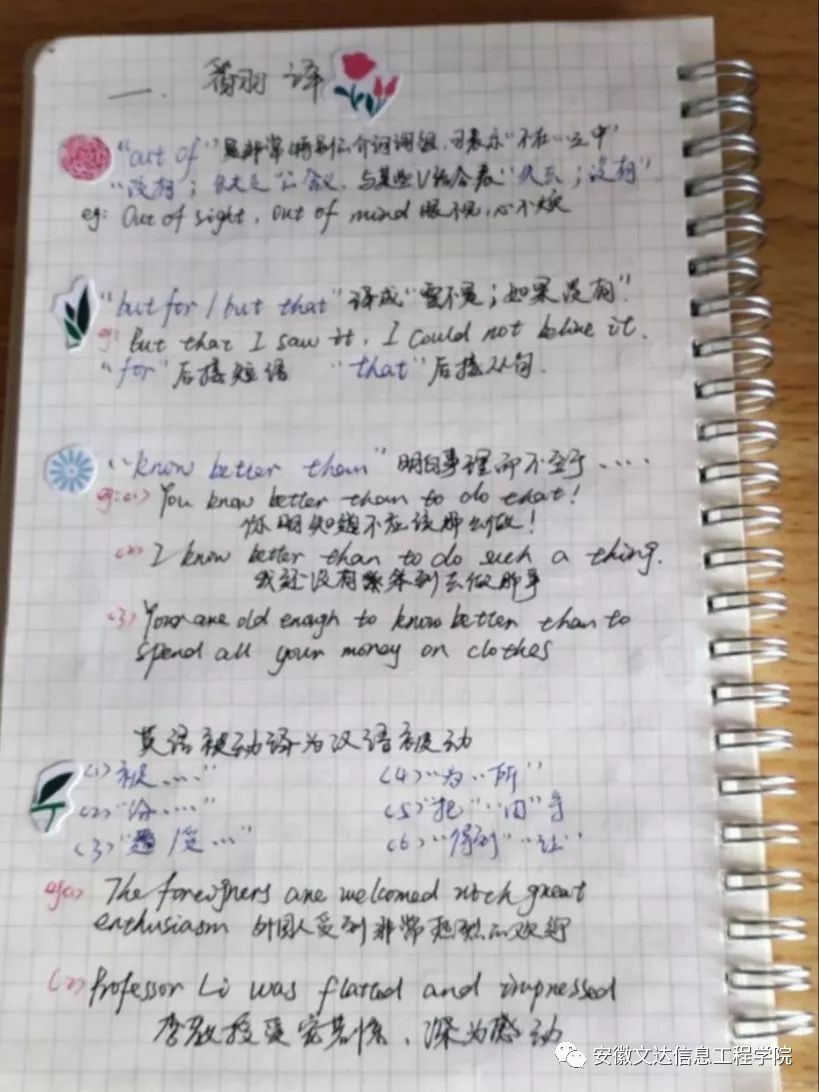 一. 翻译
"out of"是非常特别的介词词组,可表示"不在…之中"
"没有;缺乏"的含义,与某些V结合表"没有"
eg: Out of sight, out of mind 眼不视,心不烦
"but for / but that"译成"要不是;如果没有"
eg: But that I saw it, I could not belive it.
"for"后接短语 "that"后接从句.
"know better than"明白事理而不至于....
eg:(1) You know better than to do that!
你明知道不应该那么做!
(2) I know better than to do such a thing.
我还没有笨到去做那事
(3) Your are old enough to know better than to
spend all your money on clothes
英语被动译为汉语被动
(1)"被...." (4)"为..所"
(2) (5)"把" "由"等
(3)"遭/受..." (6)"得到" "让"
eg(1) The foreigners are welcomed with great
enthusiasm 外国人受到非常热烈的欢迎
(2) Professor Li was flatted and impressed
李教授受宠若惊,深为感动
安徽文达信息工程学院